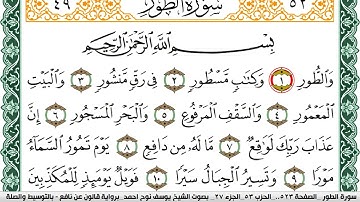 ٤٩ سورة الطور ٥٢
بِسْمِ اللَّهِ الرَّحْمَٰنِ الرَّحِيمِ
وَالطُّورِ ١ وَكِتَابٍ مَّسْطُورٍ ٢ فِي رَقٍّ مَّنشُورٍ ٣ وَالْبَيْتِ
الْمَعْمُورِ ٤ وَالسَّقْفِ الْمَرْفُوعِ ٥ وَالْبَحْرِ الْمَسْجُورِ ٦ إِنَّ
عَذَابَ رَبِّكَ لَوَاقِعٌ ٧ مَّا لَهُ مِن دَافِعٍ ٨ يَوْمَ تَمُورُ السَّمَاءُ
مَوْرًا ٩ وَتَسِيرُ الْجِبَالُ سَيْرًا ١٠ فَوَيْلٌ يَوْمَئِذٍ لِّلْمُكَذِّبِينَ
سورة الطور .. الصفحة ٥٢٣.. الحزب ٥٣ .الجزء ٢٧ .. بصوت الشيخ يوسف نوح احمد .برواية قالون عن نافع - بالتوسيط والصلة